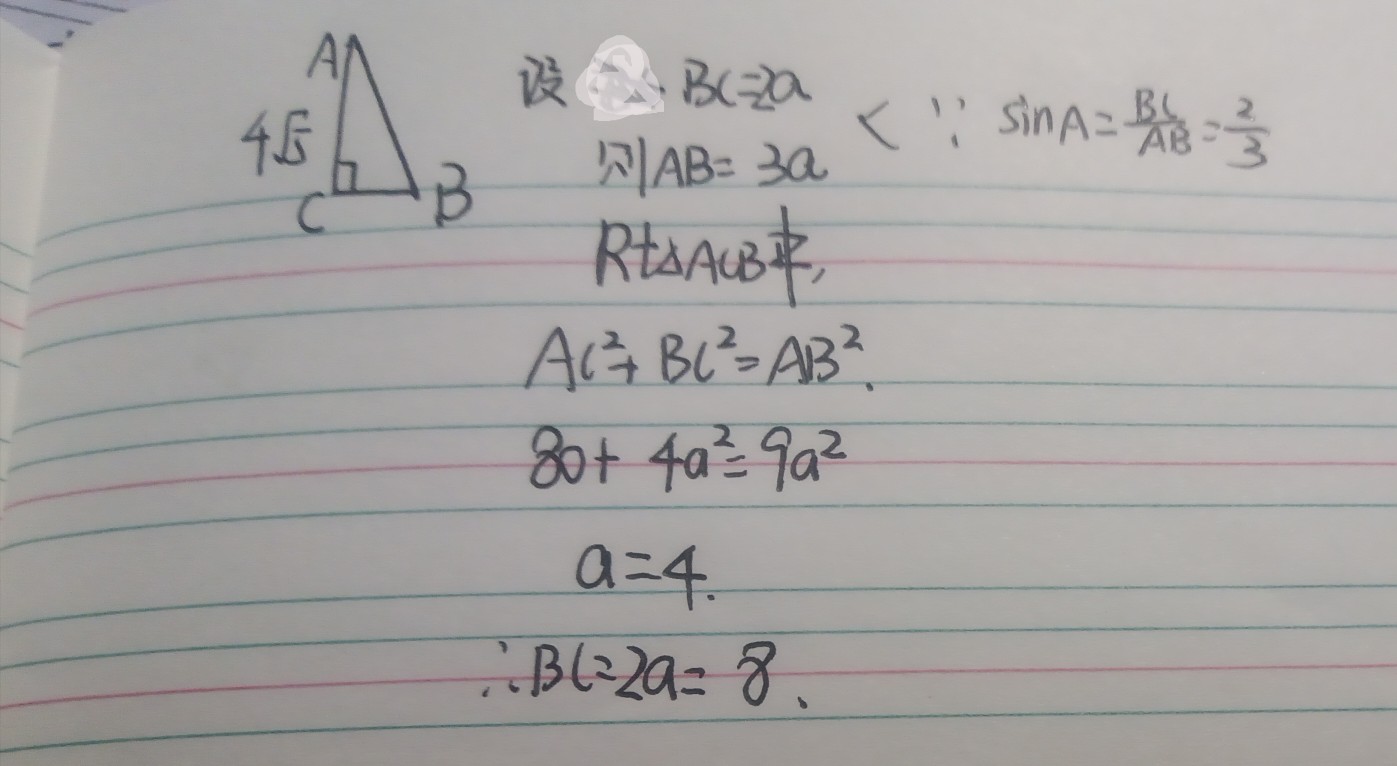 A
4√5
C
B
设 BC=2a
则AB=3a
<∵ sinA=BC/AB=2/3
Rt△ACB中,
AC²+BC²=AB².
80+4a²=9a²
a=4.
∴BC=2a=8.